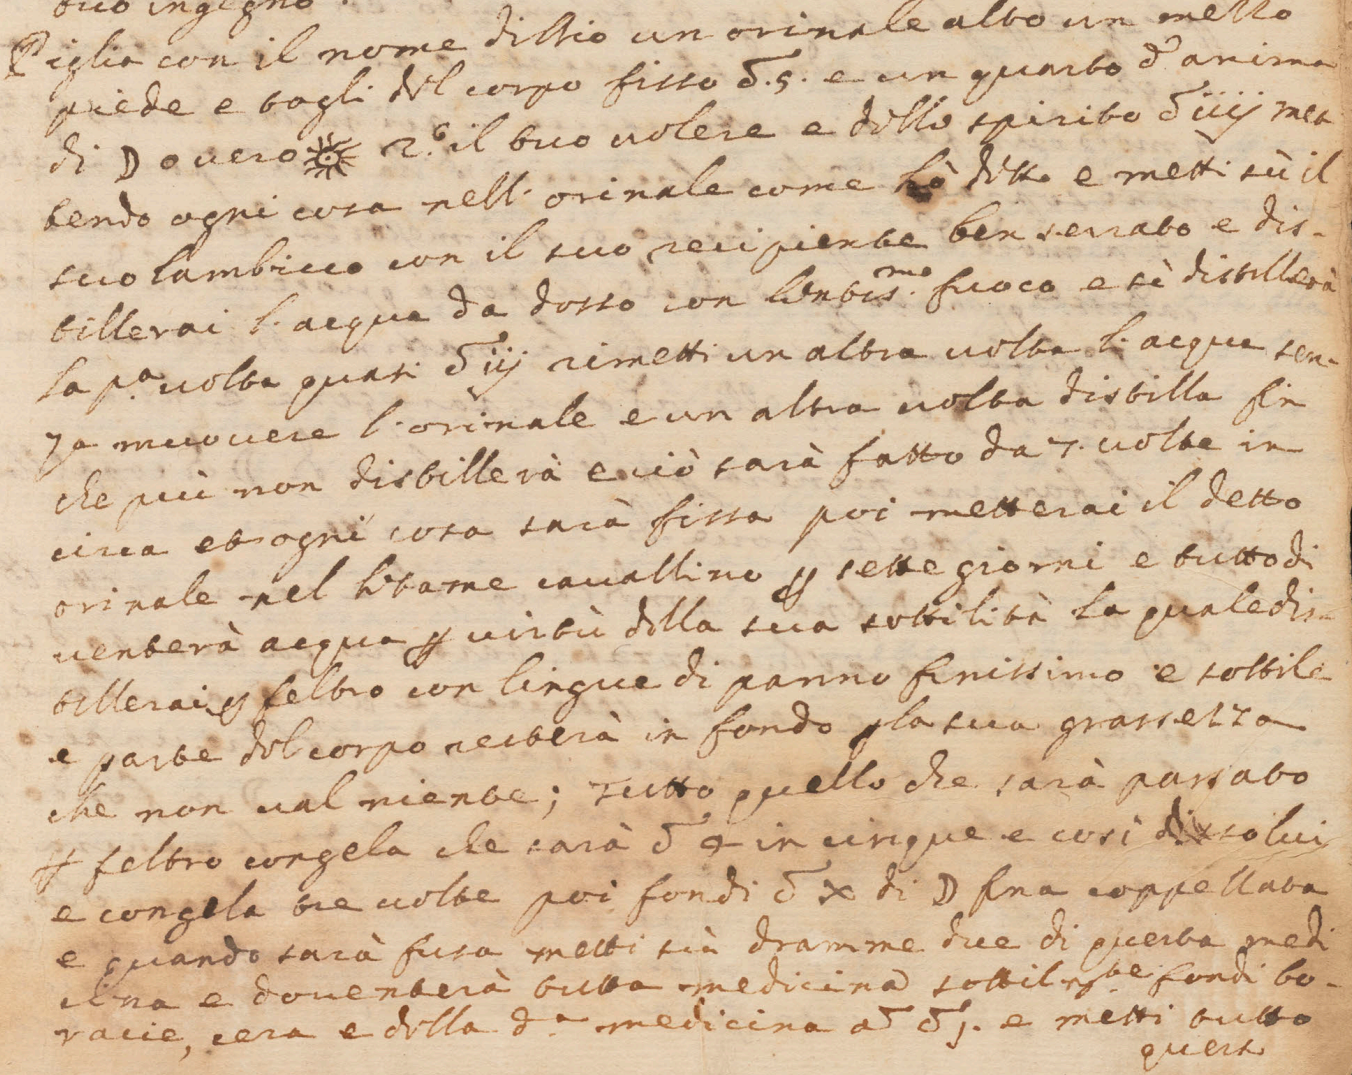 tuo ingegno.
Piglia con il nome dissio un orinale alto un mezzo
piede e togli del corpo fisso ℥.5. e un quarto d'anima
di ☽ overo ☉ 2.° il tuo volere e dello spirito ℥iiij met
tendo ogni cosa nell' orinale come hò detto e metti sù il
suo lambicco con il suo recipiente ben serrato e dis-
tillerai l'acqua da dosso con lentis.mo fuoco e sè distillerà
la p.a volta quasi ℥iij rimetti un altra volta l'acqua sen-
za muovere l'orinale e un altra volta distilla fin
che più non distillerà e ciò sarà fatto da 7. volte in
circa et ogni cosa sarà fissa poi metterai il detto
orinale nel litame cavallino ꝑ sette giorni e tutto di
venterà acqua ꝑ virtù della sua sottilità la quale dis-
tillerai ꝑ feltro con lingue di panno finissimo e sottile
e parte del corpo resterà in fondo ꝑ la sua grassezza
che non val niente; Tutto quello che sarà passato
ꝑ feltro congela che sarà ℥ 4 in cinque e così dissolvi
e congela tre volte poi fondi ℥ x di ☽ fina coppellata
e quando sarà fusa metti sù dramme due di questa medi
cina e doventerà tutta medicina sottilm.te fondi bo-
racie, cera e della d.a medicina a℥ ℥j. e metti tutto
questo